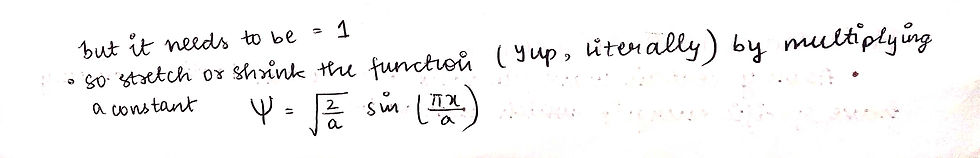 but it needs to be = 1
• so stretch or shrink the function (yup, literally) by multiplying
a constant ψ = √(2/a) sin (πx/a)